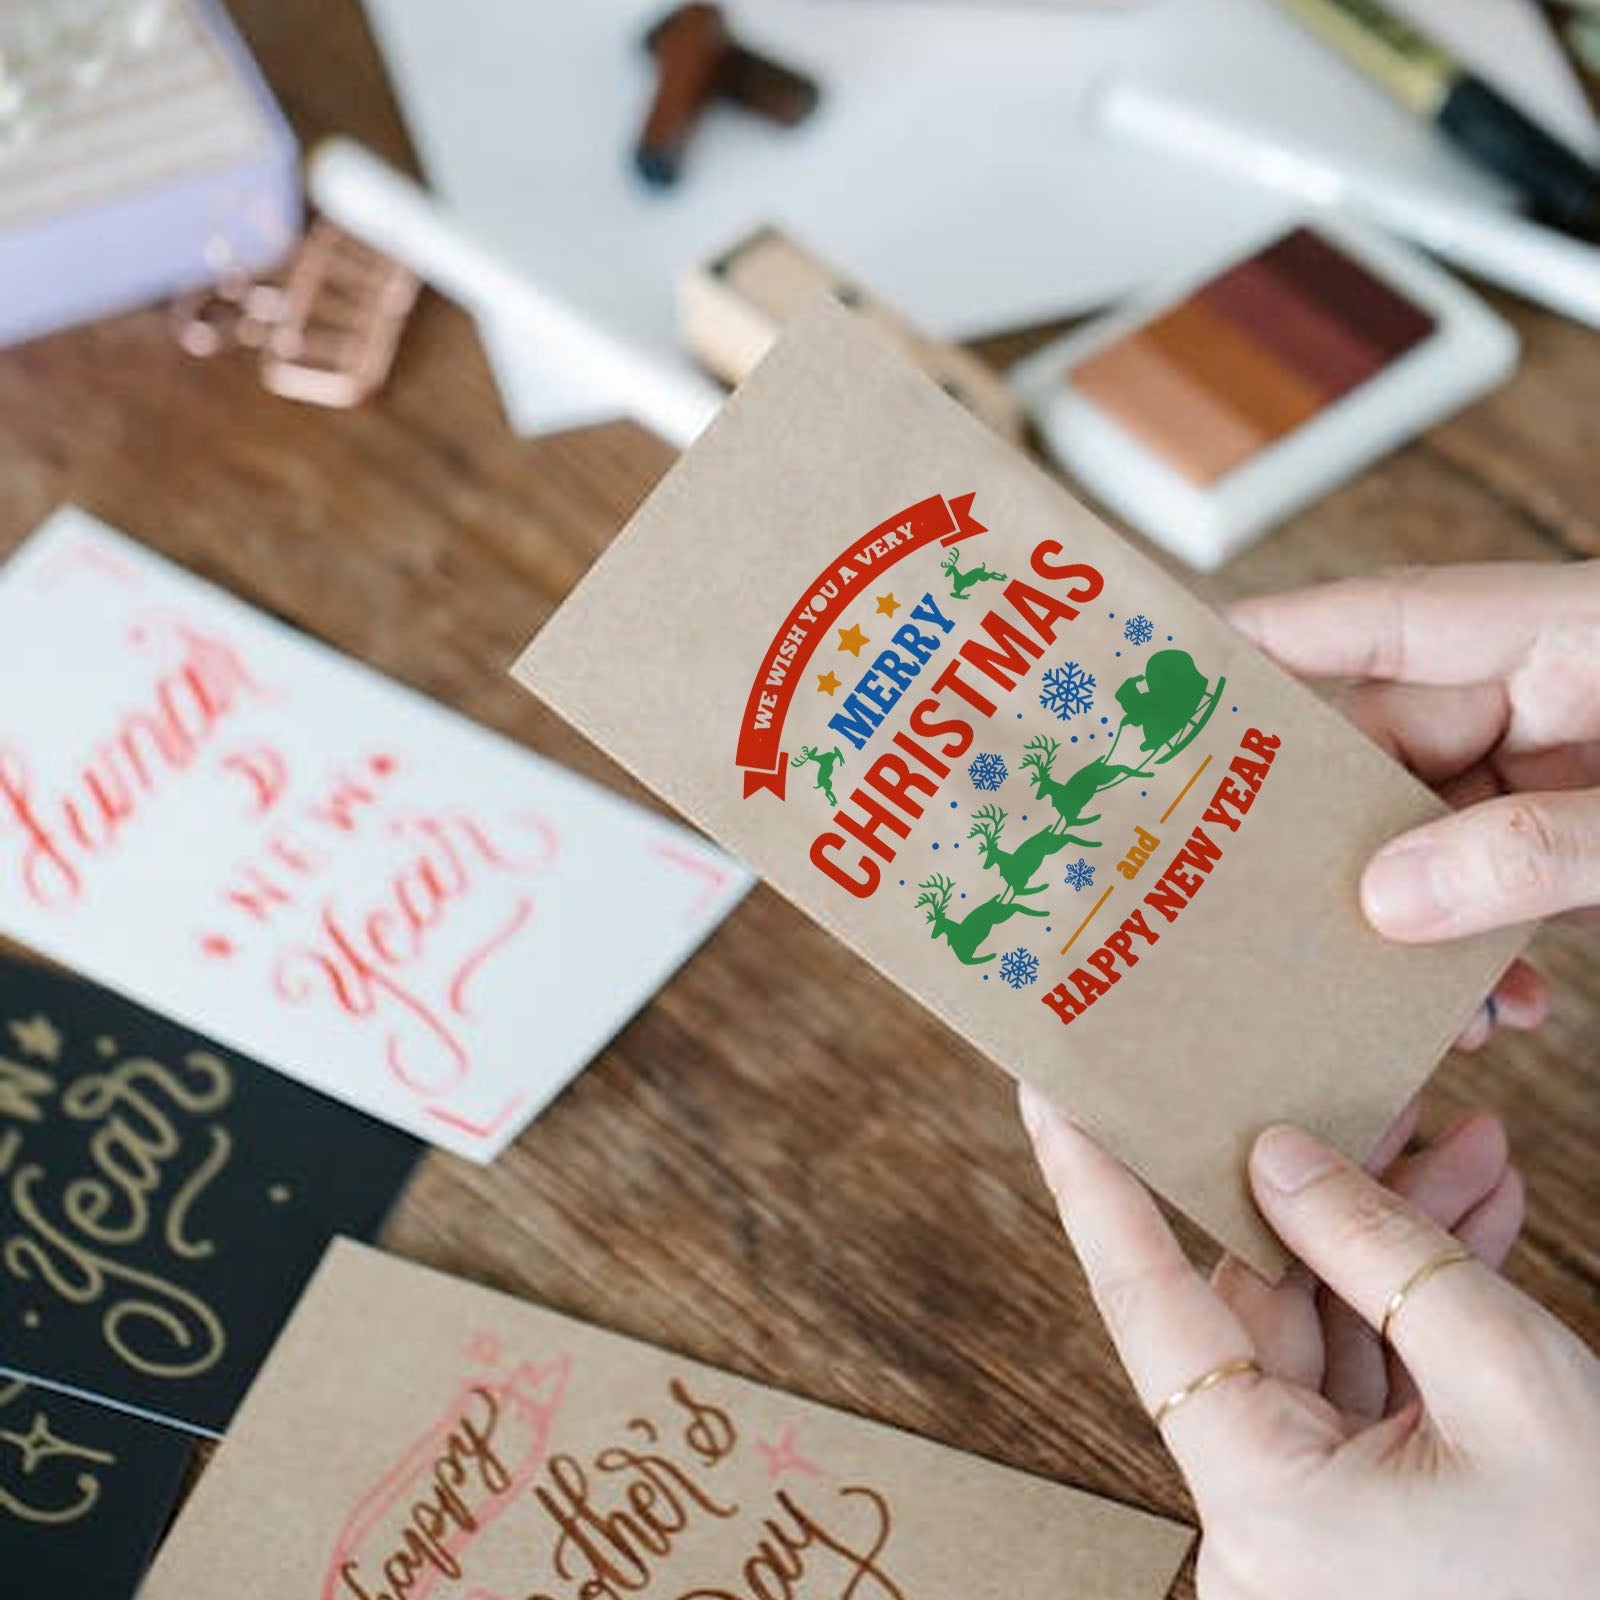 WE WISH YOU A VERY
MERRY
CHRISTMAS
and
HAPPY NEW YEAR
NEW
Year
Year
Happy
Day